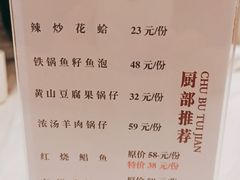 辣炒花蛤 23元/份
铁锅鱼籽鱼泡 48元/份
黄山豆腐果锅仔 32元/份
浓汤羊肉锅仔 59元/份
红烧鲳鱼 原价58元/份
特价38元/份
厨部推荐
CHU BU TUI JIAN